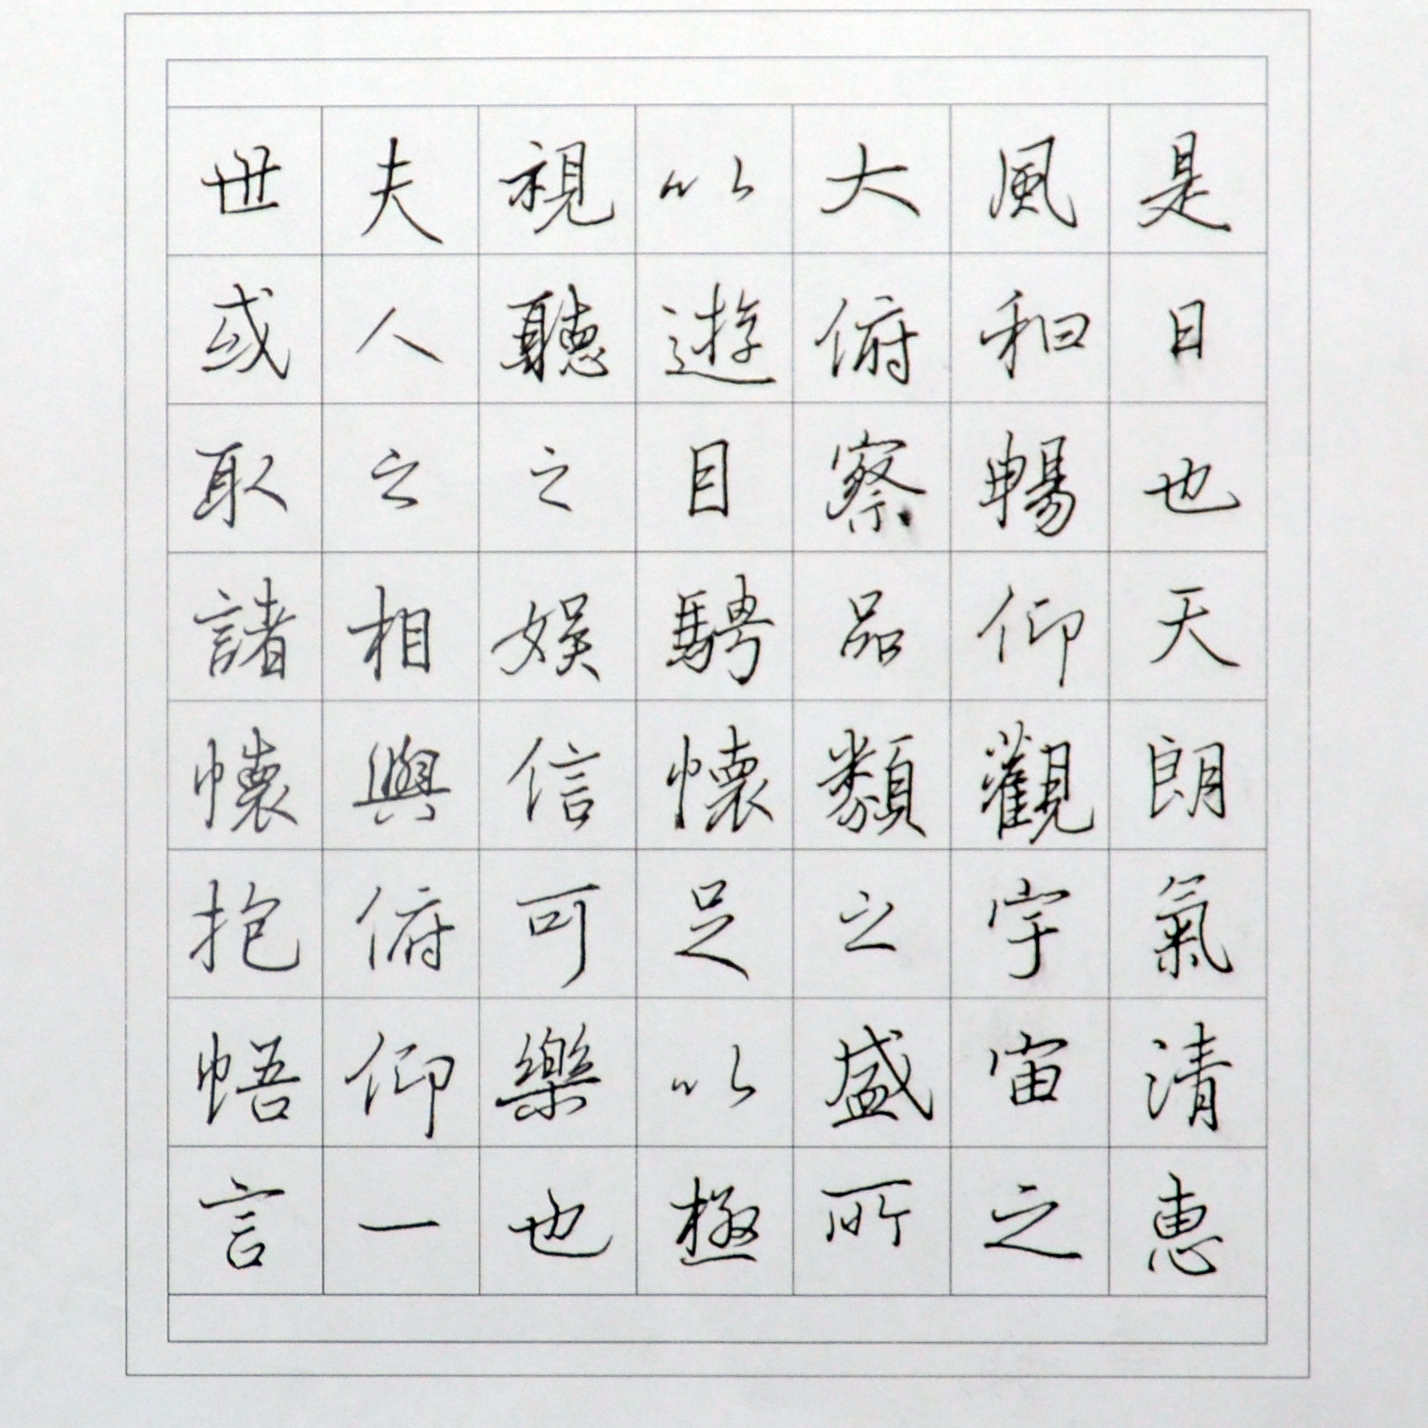 是日也天朗氣清恵
風和暢仰觀宇宙之
大俯察品類之盛所
以遊目騁懷足以極
視聽之娱信可樂也
夫人之相與俯仰一
世或取諸懷抱悟言